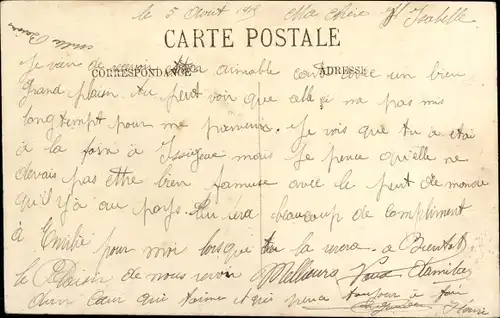 le 5 Aout Ma chère Isabelle
mille Baisers
CARTE POSTALE
CORRESPONDANCE ADRESSE
Je vien de recevoir ton aimable carte avec un bien
grand plaisir tu peut voir que elle a na pas mis
longtempt pour me parvenir. Je vois que tu a etai
à la foire à mais Je pence qu'elle ne
devais pas ettre bien fameuse avec le peut de monde
qu'il y a au pays. tu fera beaucoup de compliment
à Emilie pour moi lorsque tu la verra. a Bientot
le Plaisir de nous revoir
d'un cœur qui t'aime et qui pence toujour à toi